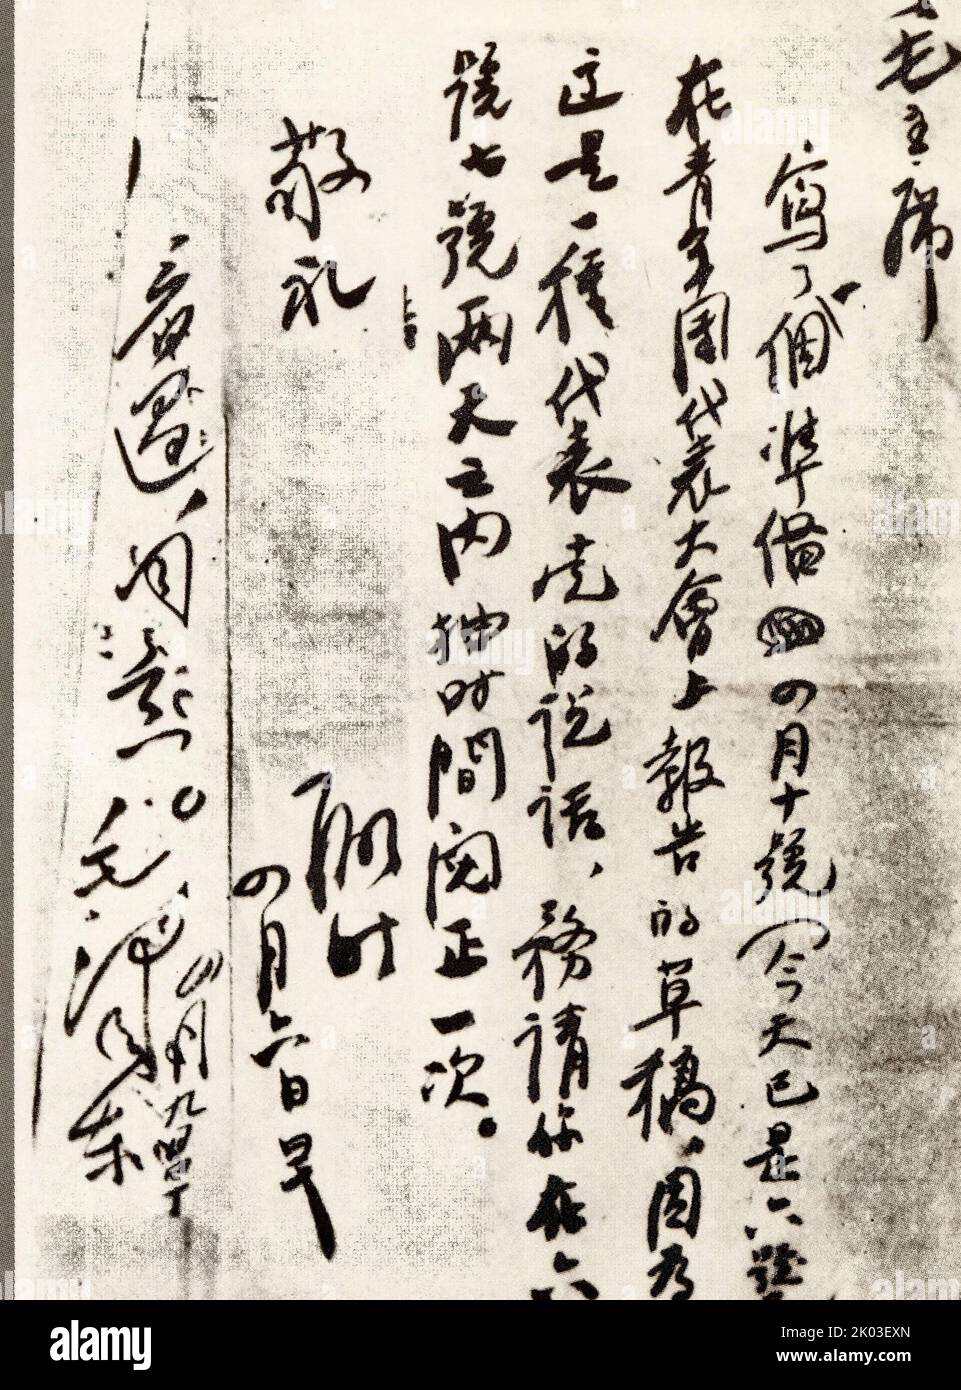 毛主席
寫了個準備四月十號（今天已是六號
在青年團代表大會上報告的草稿，因為
這是一種代表党的说话，務請你在六
號七號兩天之内抽时间閱正一次。
敬礼
四月六日早
同意。毛澤東
四月九日早
alamy
Image ID: 2K03EXN
www.alamy.com